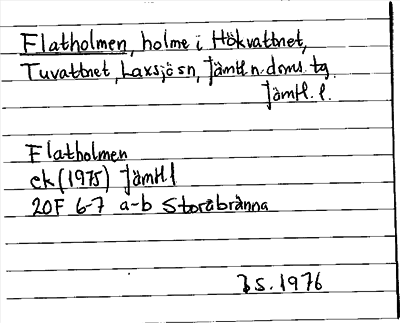 Flatholmen, holme i Hökvattnet,
Tuvattnet, Laxsjö sn, Jämtl. n. doms. tg.
Jämtl. l.
Flatholmen
ek (1975) Jämtl l
20F 6-7 a-b Storåbränna
J S. 1976